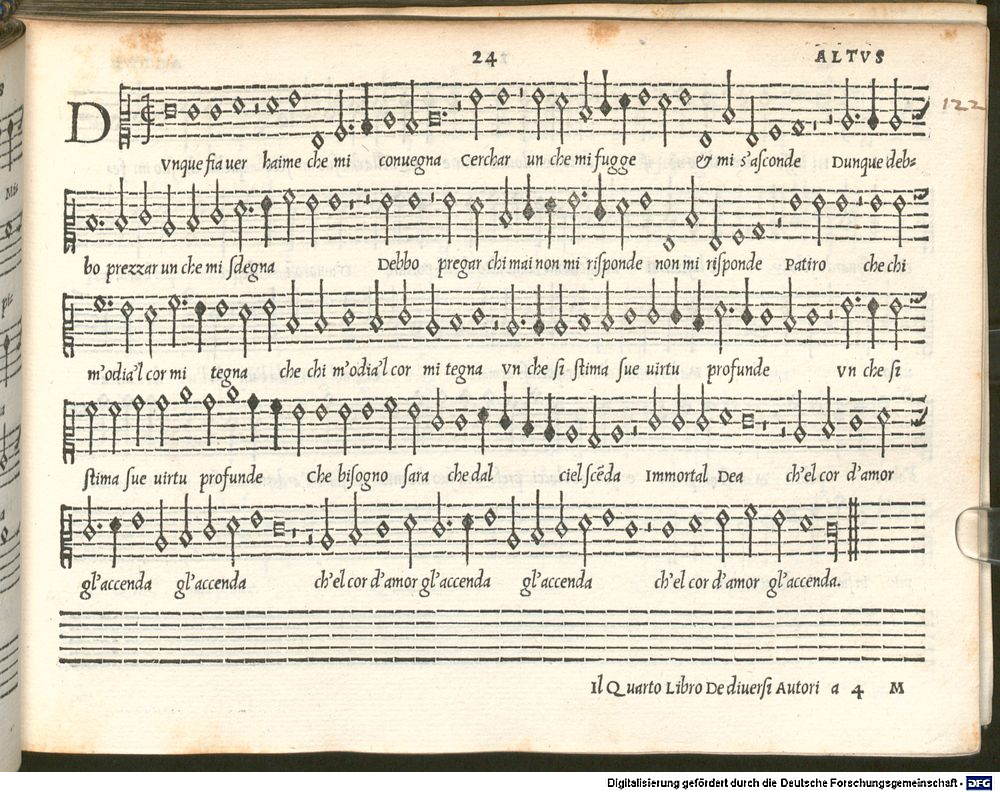 24
ALTVS
122
D
vnque fia uer haime che mi conuegna Cerchar un che mi fugge & mi s'asconde Dunque deb=
bo prezzar un che mi sdegna Debbo pregar chi mai non mi risponde non mi risponde Patiro che chi
m'odia'l cor mi tegna che chi m'odia'l cor mi tegna vn che si stima sue uirtu profunde vn che si
stima sue uirtu profunde Che bisogno sara che dal ciel scēda Immortal Dea ch'el cor d'amor
gl'accenda gl'accenda ch'el cor d'amor gl'accenda gl'accenda ch'el cor d'amor gl'accenda.
Il Quarto Libro De diuersi Autori a 4 M
Digitalisierung gefördert durch die Deutsche Forschungsgemeinschaft - DFG